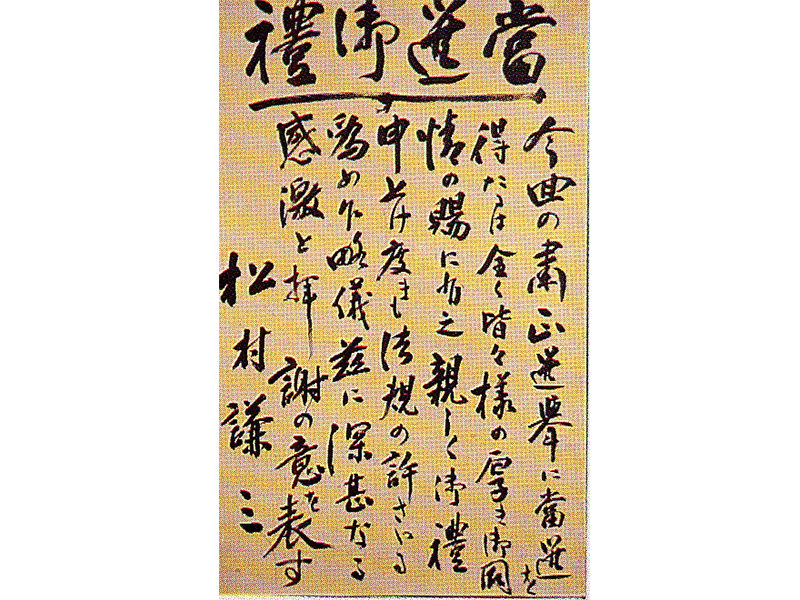 當選御禮
今回の肅正選擧に當選を
得たるは全く皆々樣の厚き御同
情の賜に有之親しく御禮
申上け度きも法規の許さゝる
爲め乍略儀茲に深甚なる
感激と拜謝の意を表す
松村謙三